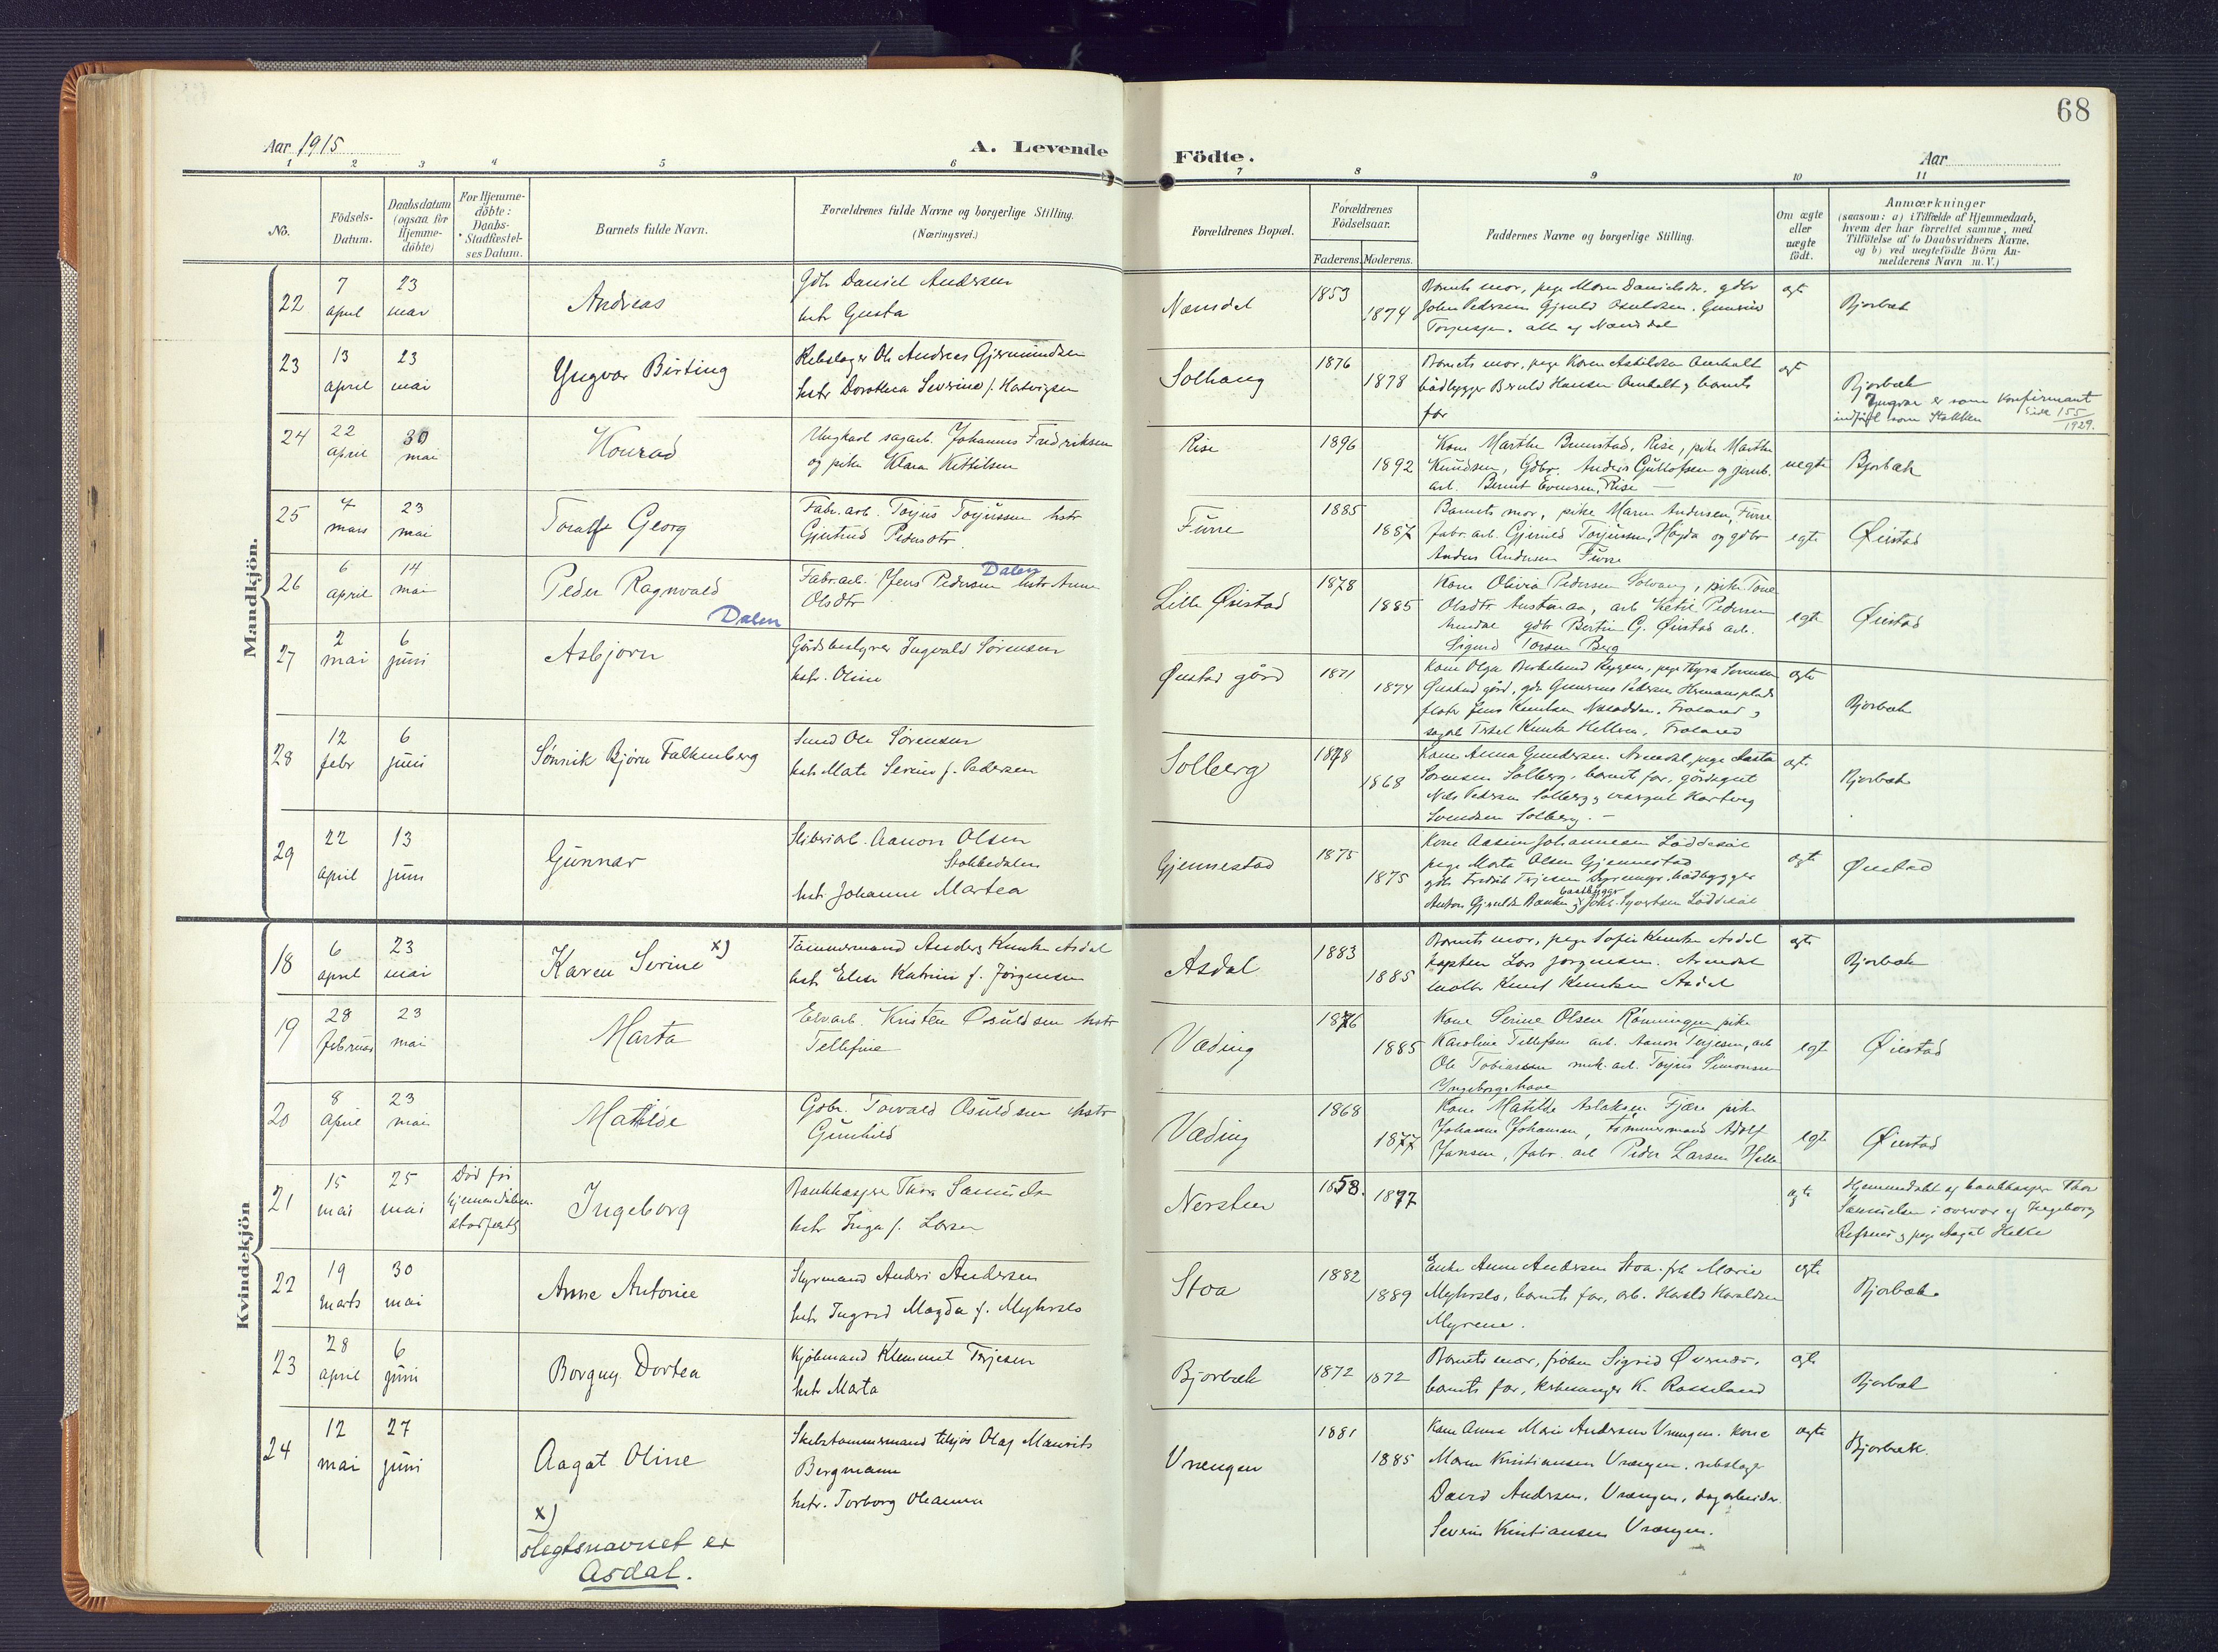 68
Aar 1915
A. Levende Födte.
Aar
1 2 3 4 5 6 7 8 9 10 11
No.
Födsels-
Datum.
Daabsdatum
(ogsaa for
Hjemme-
döbte)
For Hjemme-
döbte:
Daabs-
Stadfæstel-
ses Datum.
Barnets fulde Navn.
Forældrenes fulde Navne og borgerlige Stilling.
(Næringsvei.)
Forældrenes Bopæl.
Forældrenes
Födselsaar.
Faderens. Moderens.
Faddernes Navne og borgerlige Stilling.
Om ægte
eller
uægte
födt.
Anmærkninger
(saasom: a) i Tilfælde af Hjemmedaab,
hvem der har forrettet samme, med
Tilföielse af to Daabsvidners Navne,
og b) ved uægtefödte Börn An-
melderens Navn m. V.)
Mandkjön.
22
7
april
23
mai
Andreas
Gdbr Daniel Andersen
hstr Gusta
Næmdal
1853
1874
Barnets mor, pige Maren Danielsdr. gdbr
John Pedersen
Torjussen. alle af
egte
Bjorbæk
23
13
april
23
mai
Yngvar Birting
Rebslager Ole Andreas Gjermundsen
hstr Dorothea Severine f. Hartvigsen
Solhaug
1876
1878
Barnets mor, pige Karen Askildsen Omholt
baadbygger Hansen Omholt, barnets
far
egt
Bjorbæk
Yngvar er som Konfirmant
indført som Stokken side 155/1929.
24
22
april
30
mai
Konrad
Ungkarl sagarb. Johannes Fredriksen
og pike Klara Kittilsen
Rise
1896
1892
Kone Marthe Rise, pike Marthe
Knudsen, Gdbr. Anders Gullofsen og jernb.
arb. Bernt Evensen, Rise
uegte
Bjorbæk
25
7
mars
23
mai
Toralf Georg
Fabr. arb. Torjus Torjussen hstr
Gjertrud Pedersdtr
Furre
1885
1887
Barnets mor, pike Maren Andersen, Furre
fabr. arb. Gjeruld Torjussen, Høgda og gdbr
Anders Andersen Furre
egte
Øiestad
26
6
april
14
mai
Peder Ragnvald
Dalen
Fabr. arb. Jens Pedersen Dalen hstr Anne
Olsdtr
Lille Øiestad
1878
1885
Kone Olivia Pedersen Solvang, pike Tone
Olsdtr Austenaa, arb Ketil Pedersen
gdbr Bertin G. Øiestad arb.
Sigurd Torsen Berg
egte
Øiestad
27
2
mai
6
juni
Asbjørn
Gårdsbestyrer Ingvald Sørensen
hstr. Oline
Øiestad gård
1871
1874
Kone Olga Birkelund pige Thyra Sørensen
Øiestad gård, gdr Gunerius Pedersen Hermansplads
Jens Knutsen Froland,
Knutsen Hellen, Froland
egte
Bjorbæk
28
12
febr
6
juni
Sønnik Bjørn Falkenberg
Smed Ole Sørensen
hstr Mate Serine f. Pedersen
Solberg
1878
1868
Kone Anna Gundersen. Arendal, pige Aasta
Sørensen Solberg, barnets far, gårdsgut
Nils Pedersen Solberg, Hartvig
Svendsen Solberg.
egte
Bjorbæk
29
22
april
13
juni
Gunnar
Sliberiarb. Aanon Olsen
Stokkedalen
hstr Johanne Martea
Gjennestad
1875
1875
Kone Aasine Johannesen Løddesøl
pige Marta Olsen Gjennestad
gdr Fredrik Terjesen bådbygger
baadbygger
Løddesøl
egte
Øiestad
Kvindekjön
18
6
april
23
mai
Karen Serine x)
Tømmermand Anders Knutsen Asdal
hstr Elise Katrine f. Jørgensen
Asdal
1883
1885
Barnets mor, pige Sofie Knutsen Asdal
kaptein Lars Jørgensen. Arendal
Knut Knutsen Asdal
egte
Bjorbæk
19
28
februar
23
mai
Marta
Elvarb. Kristen Osuldsen hstr
Tellefine
Væding
1876
1885
Kone Serine Olsen Rønningen pike
Karoline Tellefsen arb. Aanon Terjesen, arb
Ole Tobiassen mek. arb. Torjus Simonsen
Ingeborgshave
egte
Øiestad
20
8
april
23
mai
Matilde
Gdbr. Torvald Osuldsen hstr
Gunhild
Væding
1868
1877
Kone Matilde Aslaksen Fjære pike
Johanne Johansen, tømmermand Adolf
Jansen, fabr. arb Peder Larsen Helle
egte
Øiestad
21
15
mai
25
mai
Død før
hjemmedåben
stadfestet
Ingeborg
Bankkasserer Thor Samuelsen
hstr Inga f. Larsen
Nersten
1858.
1877
egte
Hjemmedøbt af bankkasserer Thor
Samuelsen i overvær af Ingeborg
Refsnes og pige Aagot Helle
22
19
marts
30
mai
Anne Antonie
Styrmand Anders Andersen
hstr Ingrid Magda f. Myhrslo
Stoa
1882
1889
Enke Anne Andersen Stoa. frk Marie
Myhrslo, barnets far, arb. Harald Haraldsen
Myrene.
egte
Bjorbæk
23
28
april
6
juni
Borgny Dortea
Kjøbmand Klemmet Terjesen
hstr Marta
Bjorbæk
1872
1872
Barnets mor, frøken Sigrid Øvernæs.
barnets far, kirkesanger K. Rosseland
egte
Bjorbæk
24
12
mai
27
juni
Aagot Oline
Skibstømmermand tilsjøs Olaf Maurits
Bergmann
hstr. Torborg Oleanna
Vrængen
1881
1885
Kone Anna Marie Andersen Vrængen. kone
Maren Kristiansen Vrængen, rebslager
David Andersen, Vrængen, dagarbeider
Severin Kristiansen Vrængen.
egte
Bjorbæk
x)
slegtsnavnet er
Asdal.